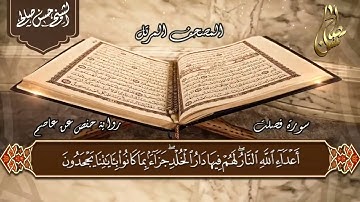 الشيخ حسن صالح
المصحف المرتل
سورة فصلت
رواية حفص عن عاصم
أَعْدَاءِ اللَّهِ النَّارُ لَهُمْ فِيهَا دَارُ الْخُلْدِ جَزَاءً بِمَا كَانُوا بِآيَاتِنَا يَجْحَدُونَ